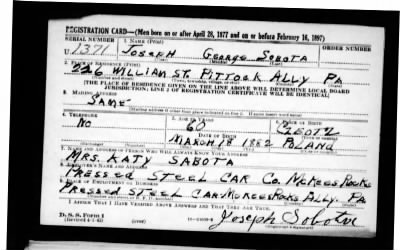 REGISTRATION CARD—(Men born on or after April 28, 1877 and on or before February 16, 1897)
SERIAL NUMBER 1. NAME (Print) ORDER NUMBER
U 1371 JOSEPH GEORGE SOBOTA
2. PLACE OF RESIDENCE (Print)
226 WILLIAM ST. PITTOCK ALLY PA
[THE PLACE OF RESIDENCE GIVEN ON THE LINE ABOVE WILL DETERMINE LOCAL BOARD
JURISDICTION; LINE 2 OF REGISTRATION CERTIFICATE WILL BE IDENTICAL]
3. MAILING ADDRESS
SAME
4. TELEPHONE 5. AGE IN YEARS 6. PLACE OF BIRTH
NO 60
DATE OF BIRTH
MARCH 18 1882 POLAND
7. NAME AND ADDRESS OF PERSON WHO WILL ALWAYS KNOW YOUR ADDRESS
MRS. KATY SABOTA
PRESSED STEEL CAR CO. MCKEES ROCKS
PRESSED STEEL CAR MCKEES ROCKS ALLY. PA
I AFFIRM THAT I HAVE VERIFIED ABOVE ANSWERS AND THAT THEY ARE TRUE.
D. S. S. Form 1
(Revised 4-1-42) (over)
Joseph Sobota